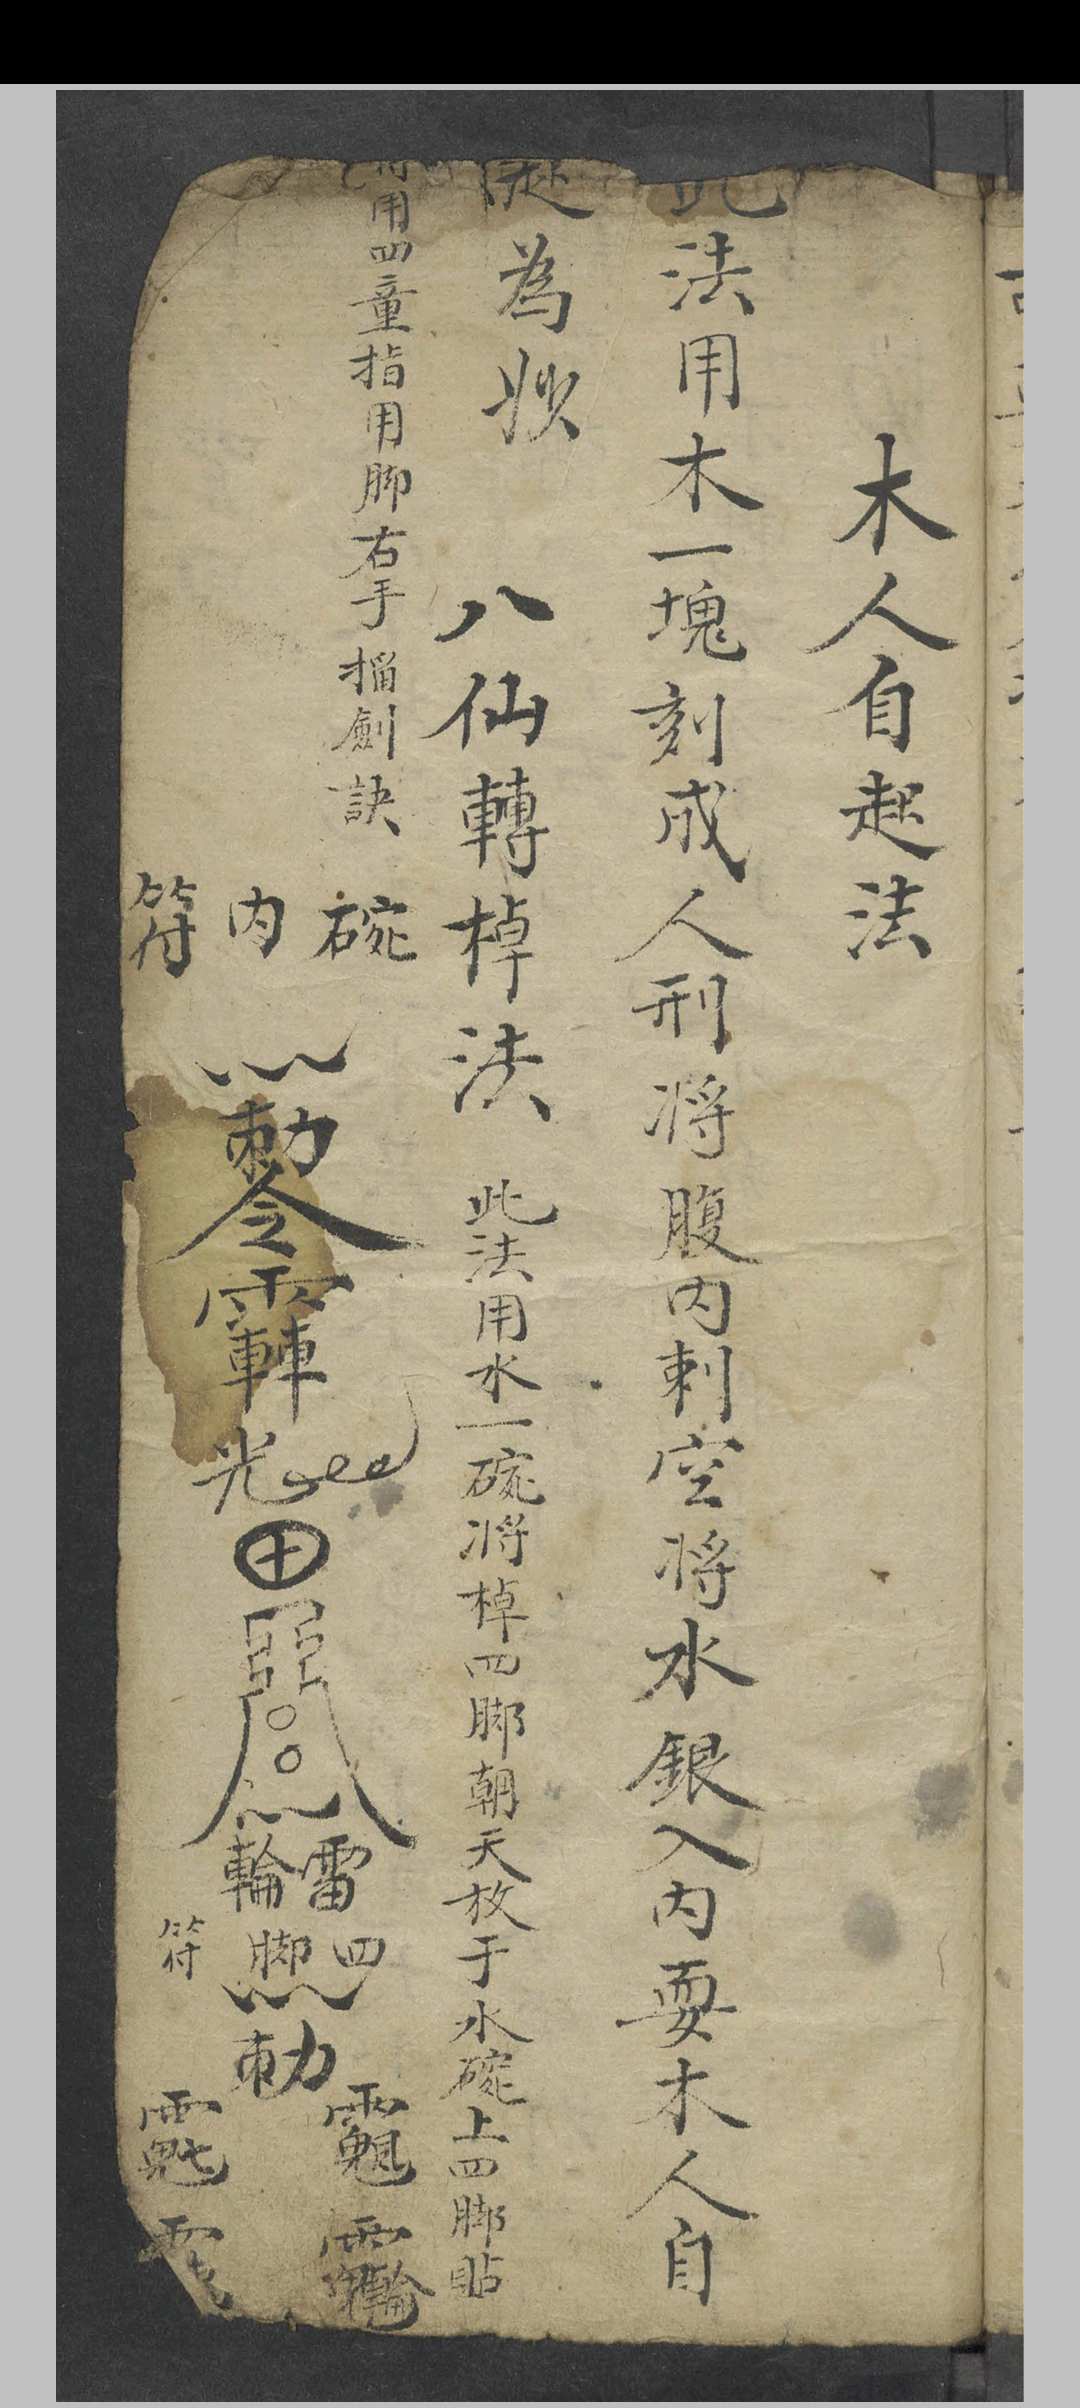 木人自起法
此法用木一塊刻成人刑将腹内剌空将水銀入内耍木人自
起為妙
八仙轉棹法
此法用水一碗将棹四脚朝天放于水碗上四脚貼
符用四童指用脚右手掐劍訣
碗内符
勅令
光
輪雷
四脚符
勅